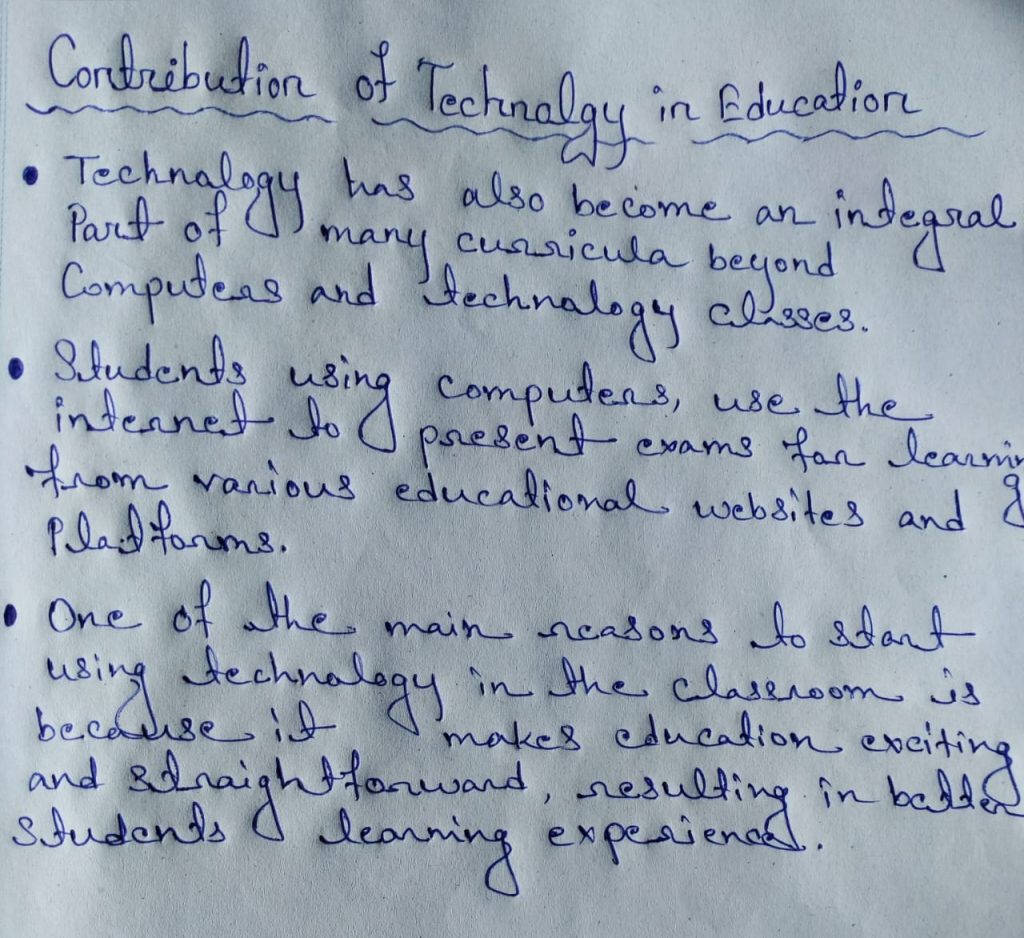 Contribution of Technalgy in Education
• Technalogy has also become an integral
Part of many curricula beyond
Computers and technalogy classes.
• Students using computers, use the
internet to present exams for learning
from various educational websites and
Platforms.
• One of the main reasons to start
using technalogy in the classroom is
because it makes education exciting
and straightforward, resulting in better
Students learning experience.